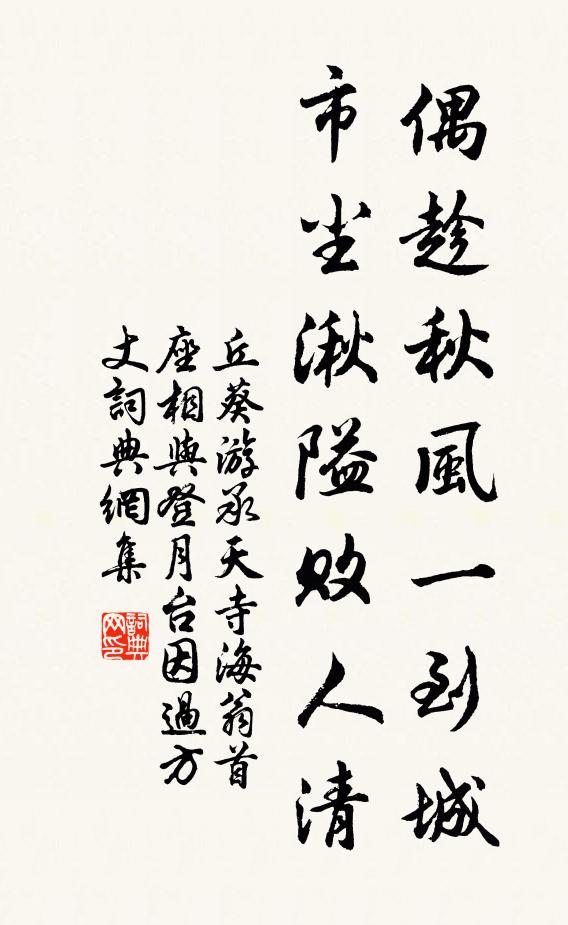 偶趁秋風一到城
市尘湫隘败人清
丘葵游承天寺海翁首
座相與登月台因過方
丈詞典網集
詞典
网印